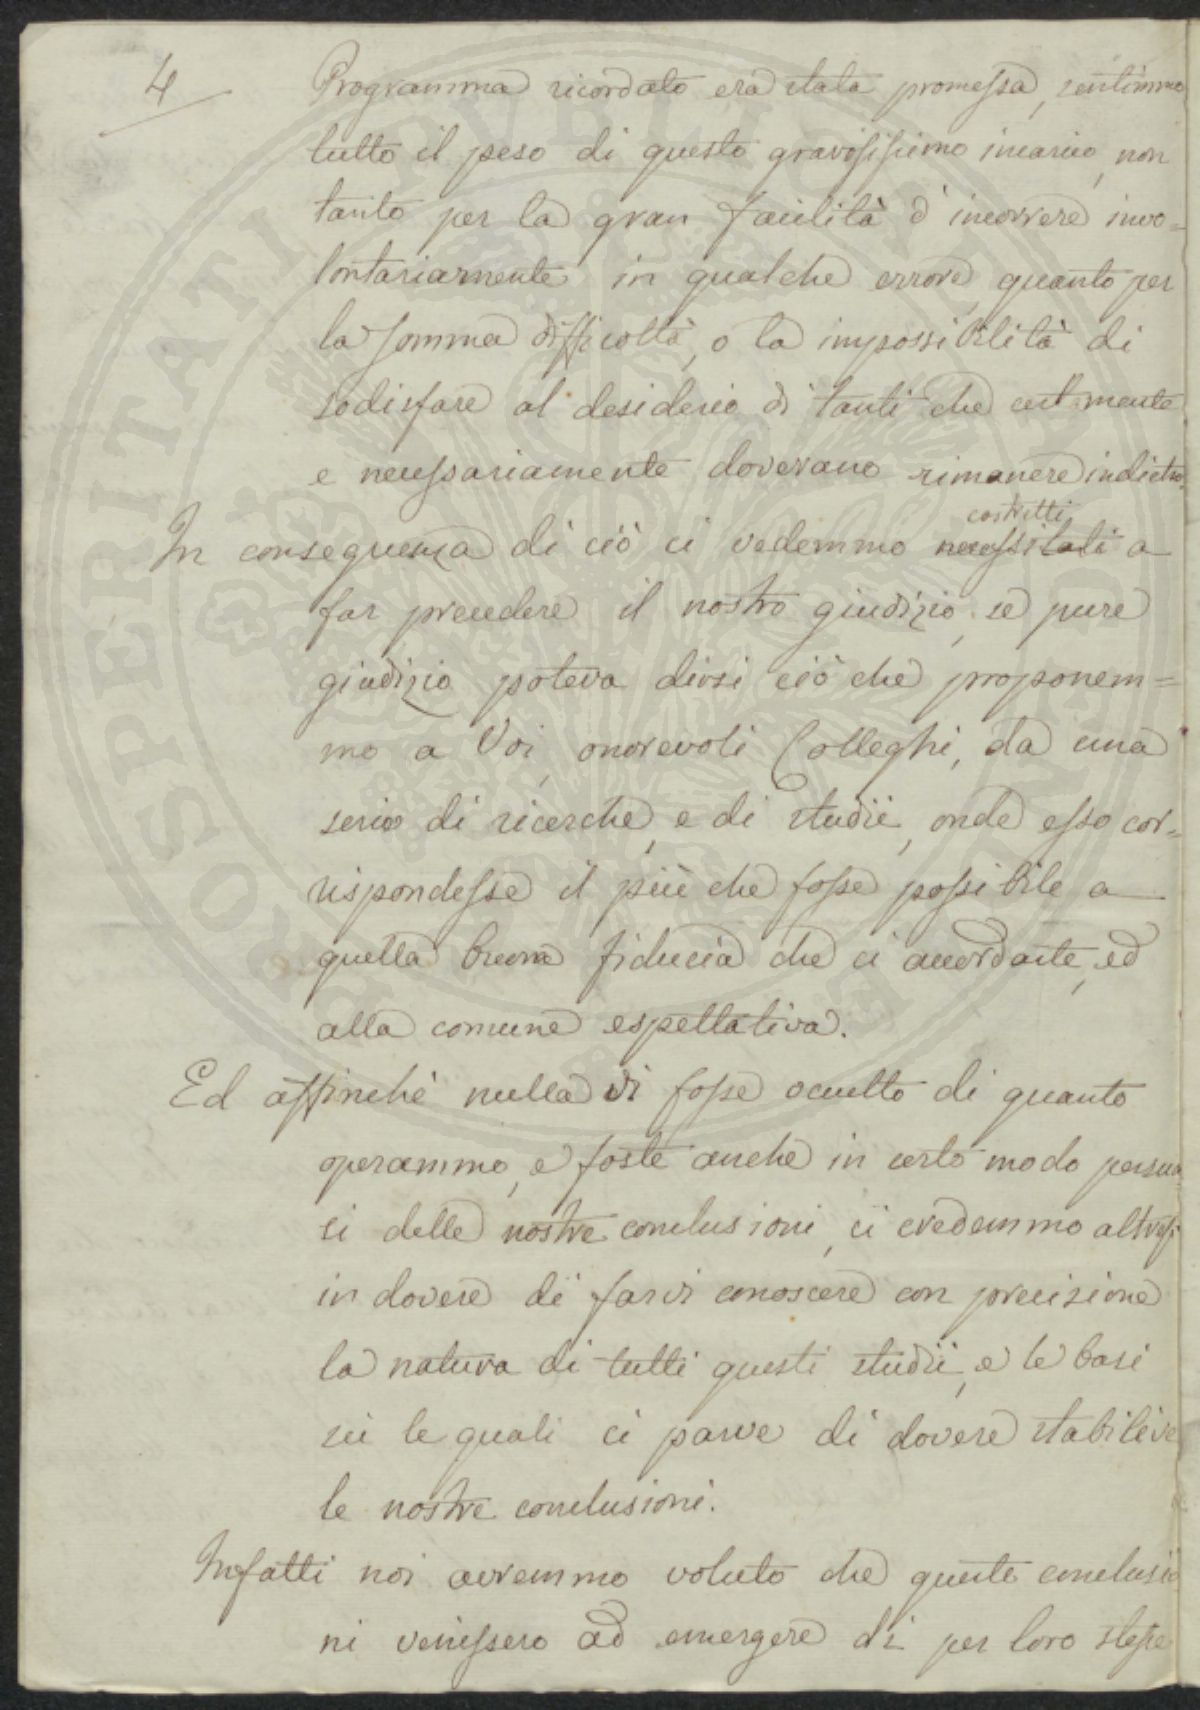 4
Programma ricordato era stata promessa, sentimmo
tutto il peso di questo gravissimo incarico, non
tanto per la gran facilità d'incorrere invo=
lontariamente in qualche errore, quanto per
la somma difficoltà, o la impossibilità di
sodisfare al desiderio di tanti che certamente
e necessariamente dovevano rimanere indietro.
costretti
In conseguenza di ciò ci vedemmo necessitati a
far precedere il nostro giudizio, se pure
giudizio poteva dirsi ciò che proponem=
mo a Voi, onorevoli Colleghi, da una
serie di ricerche, e di studii, onde esso cor=
rispondesse il più che fosse possibile a
quella buona fiducia che ci accordaste, ed
alla comune espettativa.
Ed affinchè nulla vi fosse occulto di quanto
operammo, e foste anche in certo modo persua
si delle nostre conclusioni, ci credemmo altresì
in dovere di farvi conoscere con precisione
la natura di tutti questi studii, e le basi
su le quali ci parve di dovere stabilire
le nostre conclusioni.
Infatti noi avremmo voluto che queste conclusio
ni venissero ad emergere di per loro stesse
PROSPERITATI PUBLICAE